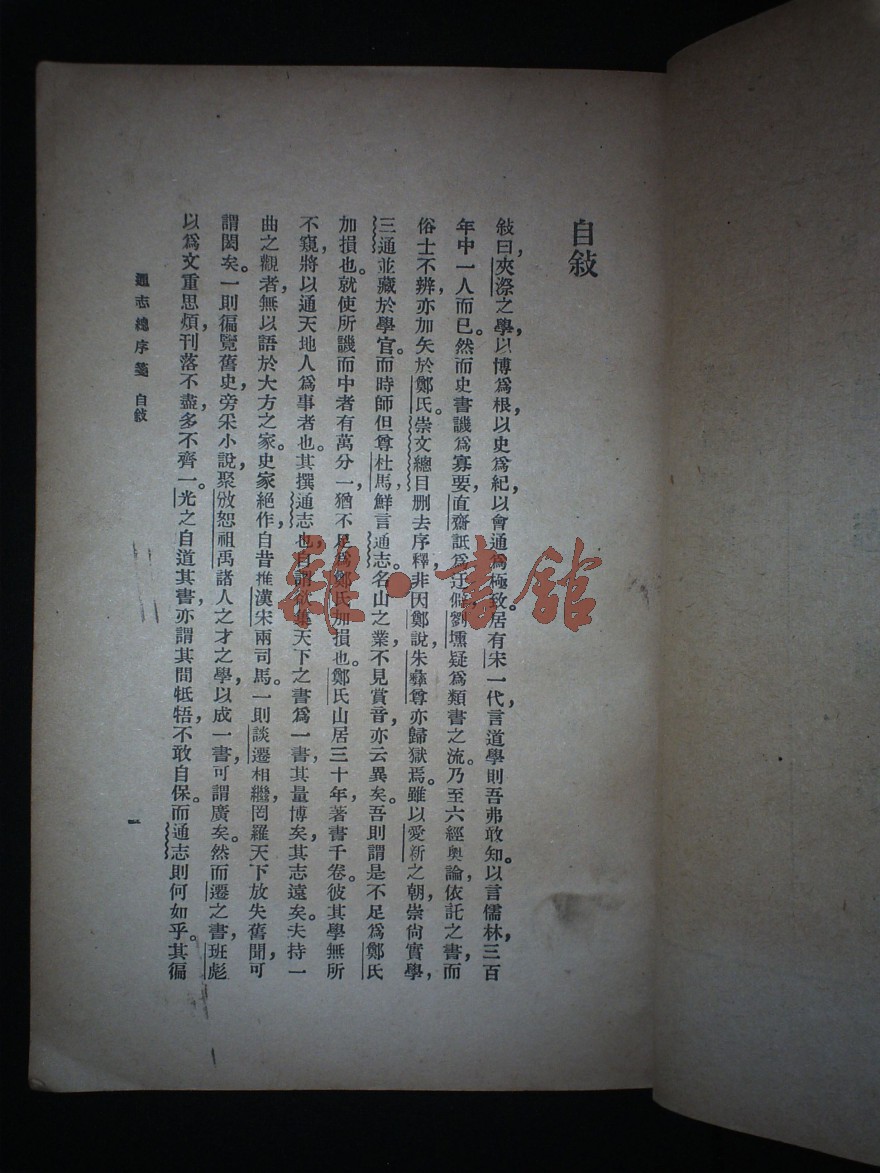 自敍
敍曰，夾漈之學，以博爲根，以史爲紀，以會通爲極致。居有宋一代，言道學則吾弗敢知。以言儒林，三百
年中一人而已。然而史書譏爲寡要，直齋詆爲迂僻，劉壎疑爲類書之流。乃至六經奧論，依託之書，而
俗士不辨，亦加矢於鄭氏。崇文總目刪去序釋，非因鄭說，朱彝尊亦歸獄焉。雖以愛新之朝，崇尙實學，
三通並藏於學官。而時師但尊杜馬，鮮言通志。名山之業，不見賞音，亦云異矣。吾則謂是不足爲鄭氏
加損也。就使所譏而中者有萬分一，猶不足爲鄭氏加損也。鄭氏山居三十年，著書千卷。彼其學無所
不窺，將以通天地人爲事者也。其撰通志也，自謂欲集天下之書爲一書，其量博矣，其志遠矣。夫持一
曲之觀者，無以語於大方之家。史家絕作，自昔推漢宋兩司馬。一則談遷相繼，罔羅天下放失舊聞，可
謂閎矣。一則徧覽舊史，旁采小說，聚攽恕祖禹諸人之才之學，以成一書，可謂廣矣。然而遷之書，班彪
以爲文重思煩，刊落不盡，多不齊一。光之自道其書，亦謂其間牴牾，不敢自保。而通志則何如乎。其徧
通志總序箋 自敍
一
雜·書館